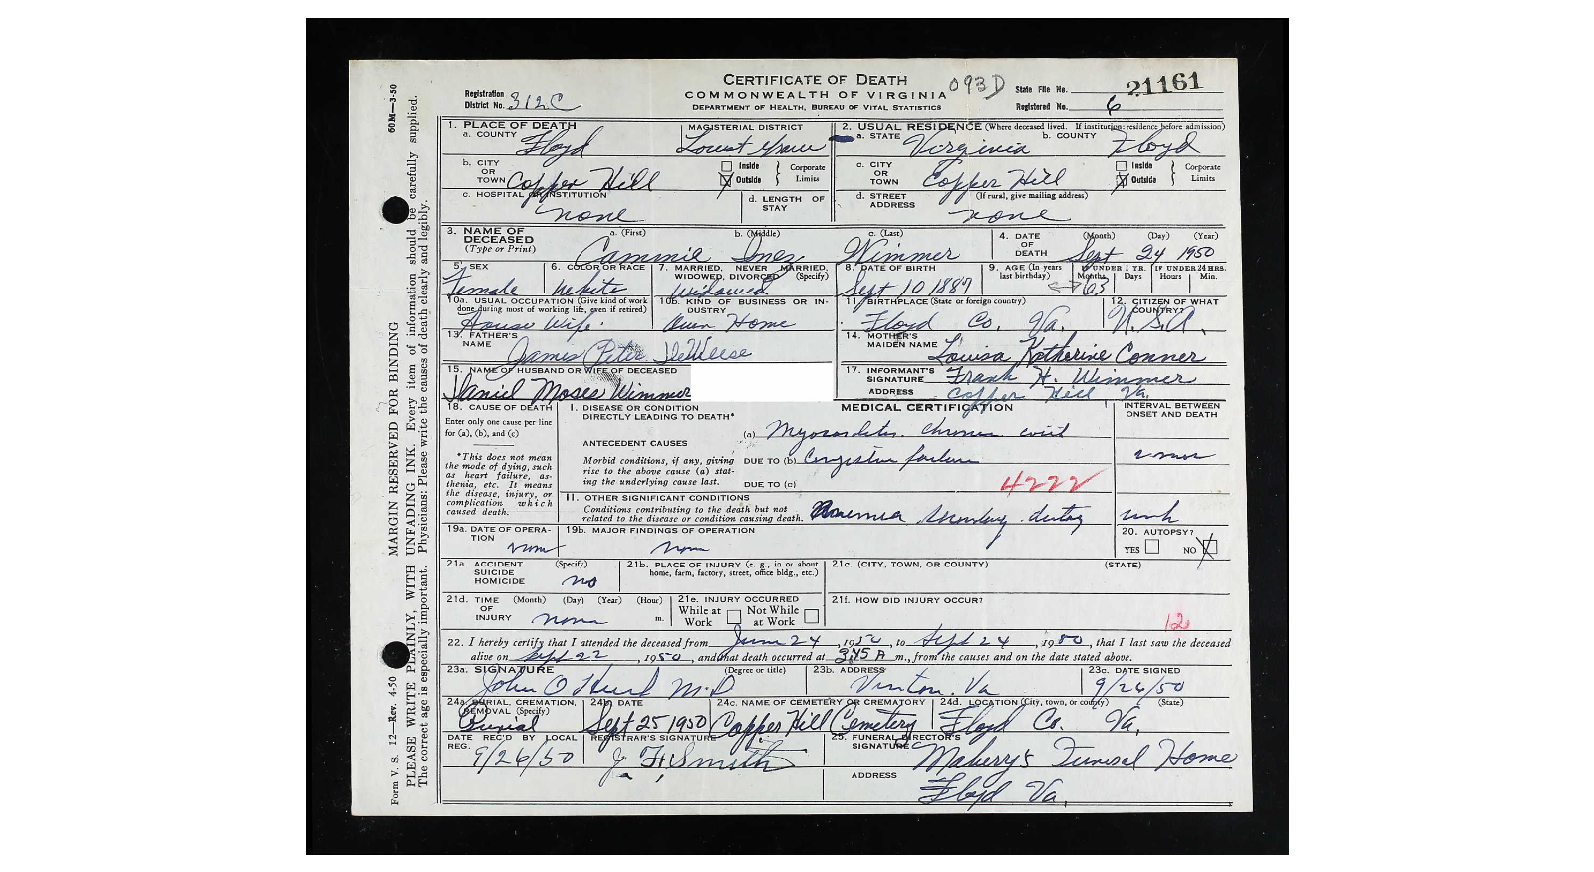 CERTIFICATE OF DEATH
COMMONWEALTH OF VIRGINIA
DEPARTMENT OF HEALTH, BUREAU OF VITAL STATISTICS
093D
Registration District No. 312C
State File No. 21161
Registered No. 6
1. PLACE OF DEATH
a. COUNTY Floyd
MAGISTERIAL DISTRICT Locust Grove
2. USUAL RESIDENCE (Where deceased lived. If institution: residence before admission)
a. STATE Virginia b. COUNTY Floyd
b. CITY OR TOWN Copper Hill
Inside Outside Corporate Limits
c. CITY OR TOWN Copper Hill
Inside Outside Corporate Limits
c. HOSPITAL OR INSTITUTION none
d. LENGTH OF STAY
d. STREET ADDRESS (If rural, give mailing address) none
3. NAME OF DECEASED (Type or Print)
a. (First) Cammie b. (Middle) Inez c. (Last) Wimmer
4. DATE OF DEATH (Month) (Day) (Year) Sept 24 1950
5. SEX Female
6. COLOR OR RACE White
7. MARRIED, NEVER MARRIED, WIDOWED, DIVORCED (Specify) Widowed
8. DATE OF BIRTH Sept 10 1887
9. AGE (In years last birthday) 63
IF UNDER 1 YR. Months Days
IF UNDER 24 HRS. Hours Min.
10a. USUAL OCCUPATION (Give kind of work done during most of working life, even if retired) House Wife
10b. KIND OF BUSINESS OR INDUSTRY Own Home
11. BIRTHPLACE (State or foreign country) Floyd Co. Va.
12. CITIZEN OF WHAT COUNTRY? U.S.A.
13. FATHER'S NAME James Peter DeWeese
14. MOTHER'S MAIDEN NAME Louisa Katherine Conner
15. NAME OF HUSBAND OR WIFE OF DECEASED Daniel Moses Wimmer
17. INFORMANT'S SIGNATURE Frank H. Wimmer
ADDRESS Copper Hill Va.
18. CAUSE OF DEATH
Enter only one cause per line for (a), (b), and (c)
*This does not mean the mode of dying, such as heart failure, asthenia, etc. It means the disease, injury, or complication which caused death.
MEDICAL CERTIFICATION
INTERVAL BETWEEN ONSET AND DEATH
I. DISEASE OR CONDITION DIRECTLY LEADING TO DEATH*
(a) Myocarditis. chronic
ANTECEDENT CAUSES
Morbid conditions, if any, giving rise to the above cause (a) stating the underlying cause last.
DUE TO (b) Congestive failure
DUE TO (c)
4222
II. OTHER SIGNIFICANT CONDITIONS
Conditions contributing to the death but not related to the disease or condition causing death. Anemia secondary
19a. DATE OF OPERATION none
19b. MAJOR FINDINGS OF OPERATION none
20. AUTOPSY? YES NO
21a. ACCIDENT SUICIDE HOMICIDE (Specify) no
21b. PLACE OF INJURY (e. g., in or about home, farm, factory, street, office bldg., etc.)
21c. (CITY, TOWN, OR COUNTY) (STATE)
21d. TIME OF INJURY (Month) (Day) (Year) (Hour) m. none
21e. INJURY OCCURRED While at Work Not While at Work
21f. HOW DID INJURY OCCUR?
12
22. I hereby certify that I attended the deceased from June 24, 1950, to Sept 24, 1950, that I last saw the deceased
alive on Sept 22, 1950, and that death occurred at 3:45 A m., from the causes and on the date stated above.
23a. SIGNATURE (Degree or title) John O Hurt M.D
23b. ADDRESS Vinton. Va
23c. DATE SIGNED 9/26/50
24a. BURIAL, CREMATION, REMOVAL (Specify) Burial
24b. DATE Sept 25 1950
24c. NAME OF CEMETERY OR CREMATORY Copper Hill Cemetery
24d. LOCATION (City, town, or county) (State) Floyd Co. Va.
DATE REC'D BY LOCAL REG. 9/26/50
REGISTRAR'S SIGNATURE J. H. Smith
25. FUNERAL DIRECTOR'S SIGNATURE Mabery's Funeral Home
ADDRESS Floyd Va.
60M—3-50
MARGIN RESERVED FOR BINDING
Form V. S. 12—Rev. 4-50
PLEASE WRITE PLAINLY, WITH UNFADING INK. Every item of information should be carefully supplied.
The correct age is especially important. Physicians: Please write the causes of death clearly and legibly.